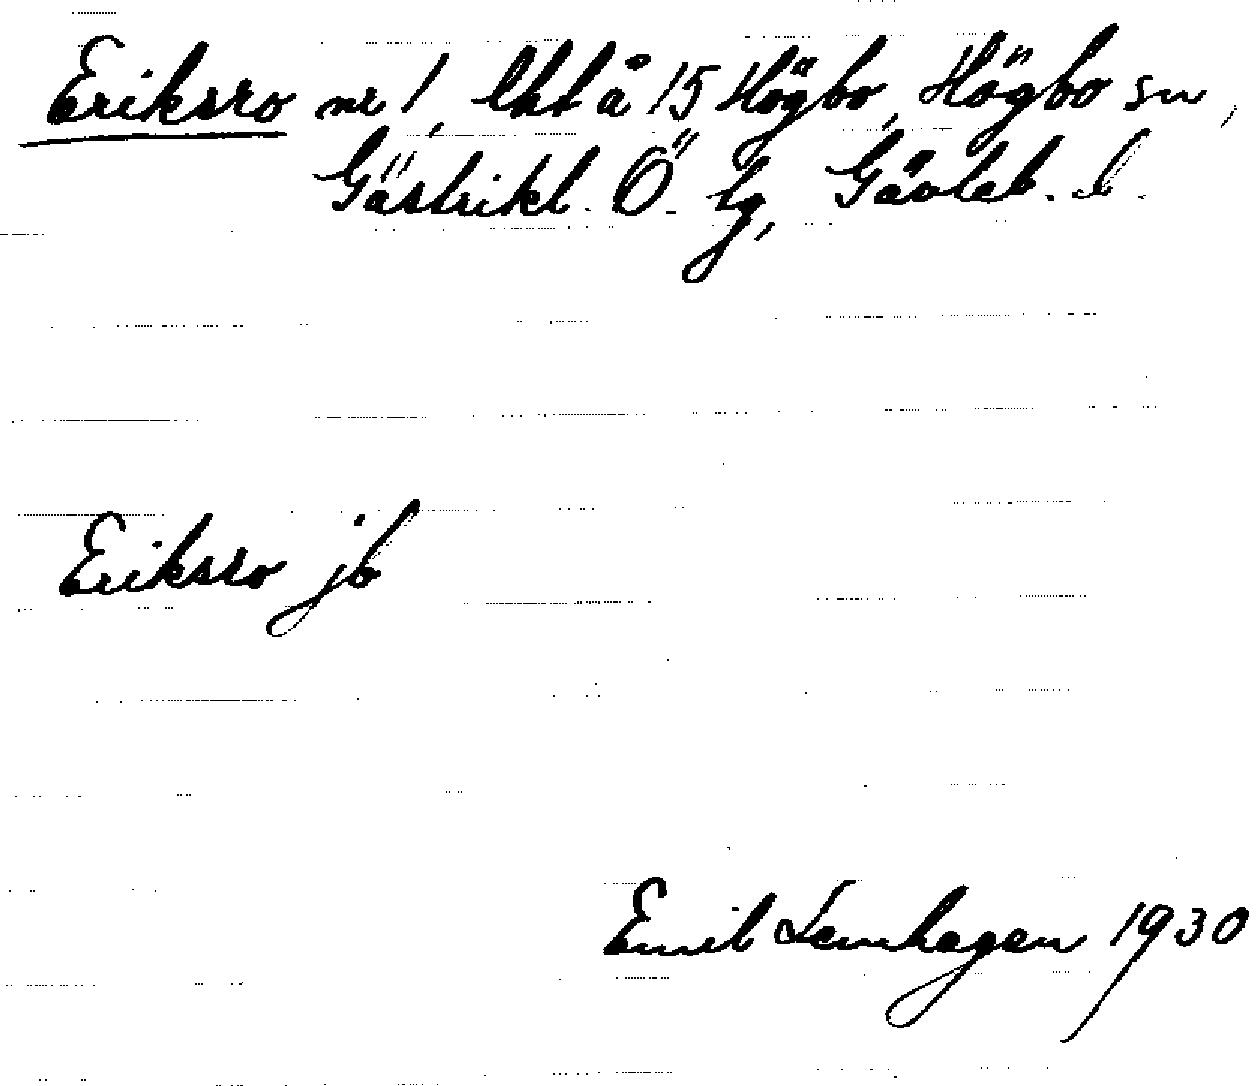 Eriksro nr 1, lht å 15 Högbo, Högbo sn,
Gästrikl. Ö. tg, Gävleb. l.
Eriksro jb
Emil Lemhagen 1930